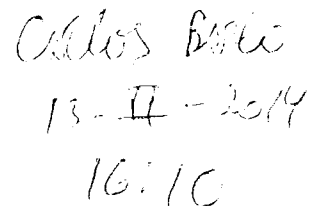 Carlos
13-II-2014
16:10